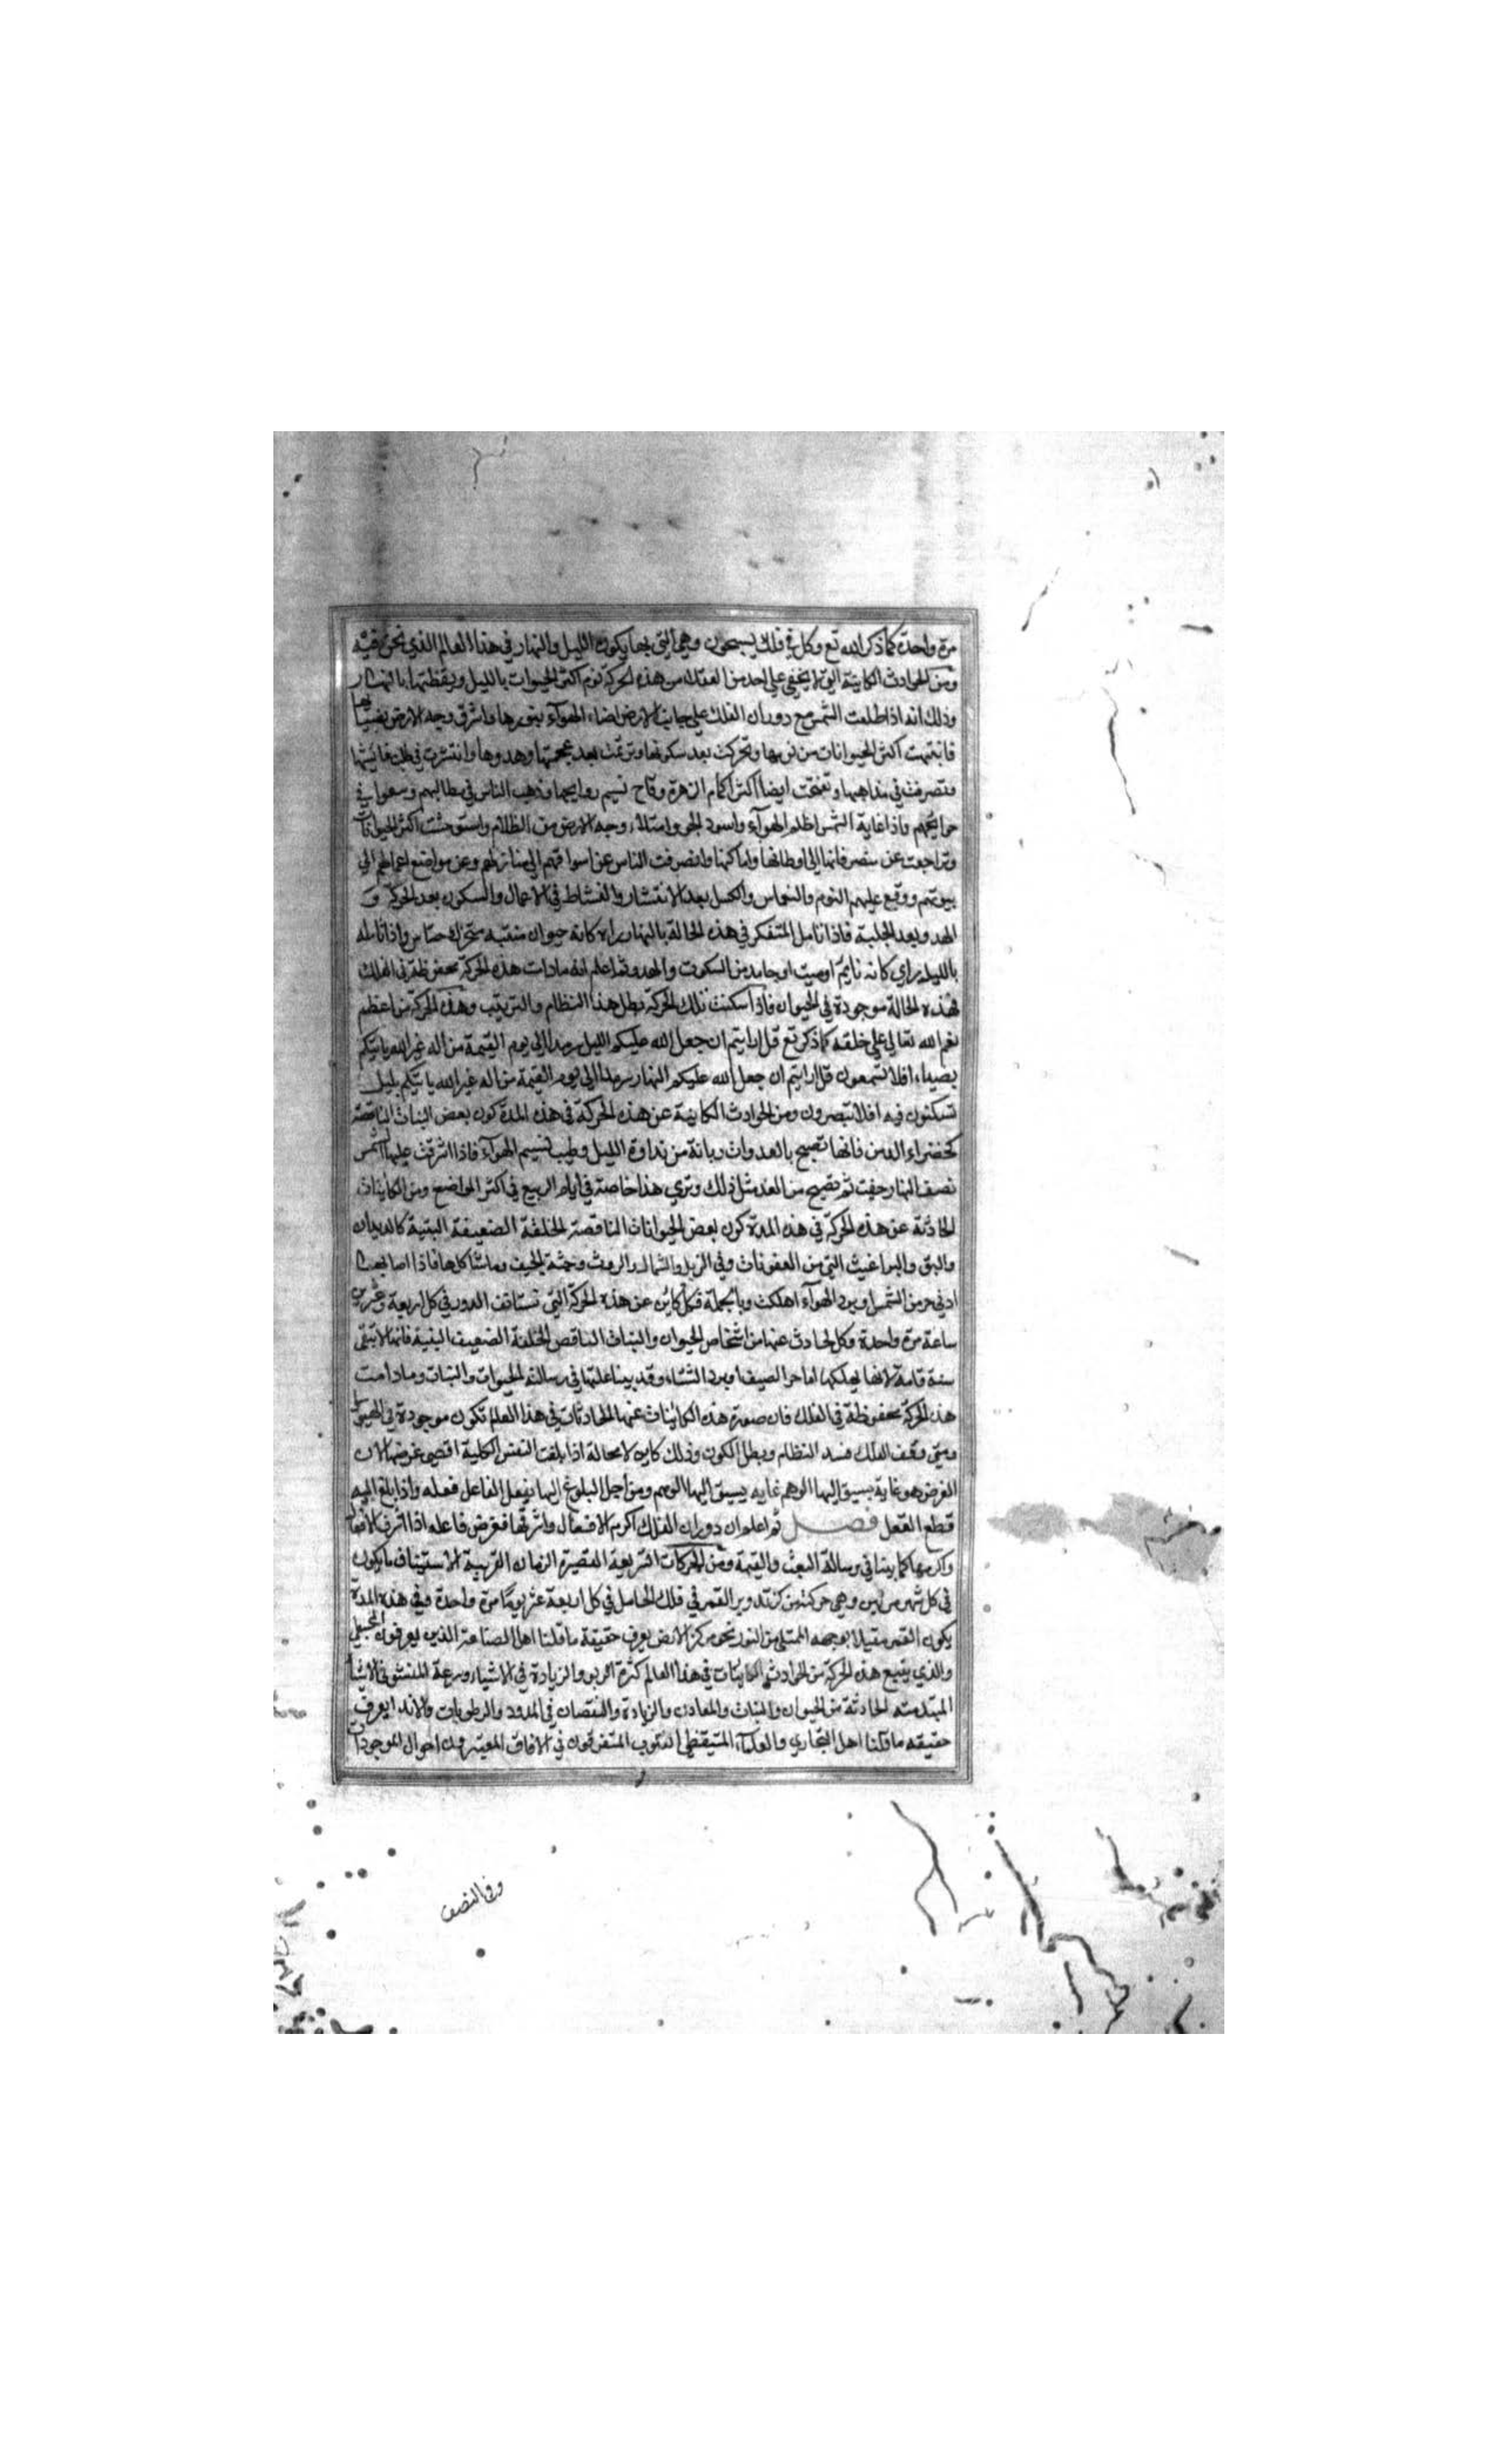 مرة واحدة كما ذكر الله تع وكل في فلك يسبحون وهي التي بها يكون الليل والنهار في هذا العالم الذي نحن فيه
ومن الحوادث الكاينة التي لا يخفي علي احد من العقلاء من هذه الحركة نوم اكثر الحيوات بالليل ويقظتها بالنهار
وذلك انه اذا طلعت الشمس مع دوران الفلك علي جانب الارض اضاء الهوآء بنورها واشرق وجه الارض بضيايها
فانتبهت اكثر الحيوانات من نومها وتحركت بعد سكونها وترنمت بعد عجمتها وهدوها وانتشرت في طلب معايشها
وتصرفت في مذاهبها وتفتحت ايضا اكثر اكمام الزهرة وفاح نسيم روايحها وذهب الناس في مطالبهم وسعوا في
حوائجهم فاذا غابة الشمس اظلم الهوآء واسود الجو وامتلاء وجه الارض من الظلام واستوحشت اكثر الحيوانات
وتراجعت عن متصرفاتها الي اوطانها واماكنها وانصرفت الناس عن اسواقهم الي منازلهم وعن مواضع اعمالهم الي
بيوتهم ووقع عليهم النوم والنعاس والكسل بعد الانتشار والنشاط في الاعمال والسكون بعد الحركة و
الهدو بعد الجلبة فاذا تامل المتفكر في هذه الحالة بالنهار يراه كانه حيوان منتبه متحرك حساس واذا تامله
بالليل يراي كانه نايم او ميت او جامد من السكون والهدو ثم اعلم انه ما دات هذه الحركة محفوظة في الفلك
فهذه الحالة موجودة في الحيوان فاذا سكنت تلك الحركة بطل هذا النظام والترتيب وهذه الحركة من اعظم
نعم الله تعالي علي خلقه كما ذكر تع قل ارايتم ان جعل الله عليكم الليل سرمدا الي يوم القيمة من اله غير الله ياتيكم
بضياء افلا تسمعون قل ارايتم ان جعل الله عليكم النهار سرمدا الي يوم القيمة من اله غير الله ياتيكم بليل
تسكنون فيه افلا تبصرون ومن الحوادث الكاينة عن هذه الحركة في هذه المدة كون بعض النبات الناقصة
كخضراء الدمن فانها تصبح بالغدوات ريانة من نداوة الليل وطيب نسيم الهوآء فاذا اشرقت عليها الشمس
نصف النهار جفت ثم تصبح من الغد مثل ذلك وتري هذا خاصة في ايام الربيع في اكثر المواضع ومن الكاينات
الحادثة عن هذه الحركة في هذه المدة كون بعض الحيوانات الناقصة الخلقة الضعيفة البنية كالديدان
والبق والبراغيث التي من العفونات وفي الزبل والروث وجثة الجيف وما شاكلها فاذا اصابها
ادني حر من الشمس او برد الهوآء اهلكت وبالجملة فكل كاين عن هذه الحركة التي تستانف الدور في كل اربعة وعشرين
ساعة مرة واحدة وكل حادث عنها من اشخاص الحيوان والنبات الناقص الخلقة الضعيف البنية فانها لا تبقي
سنة تامة لانها يهلكها اما حر الصيف او برد الشتاء وقد بينا علتها في رسالة الحيوات والنبات وما دامت
هذه الحركة محفوظة في الفلك فان صورة هذه الكائينات عنها الحادثات في هذا العالم تكون موجودة في الهيولي
ومتي وقف الفلك فسد النظام وبطل الكون وذلك كاين لا محالة اذا بلغت النفس الكلية اقصي غرضها لان
الغرض هو غاية يسبق اليها الوهم غايه يسبق اليها الوهم ومن اجل البلوغ اليها يفعل الفاعل فعله واذا بلغ اليه
قطع الفعل فصل ثم اعلم ان دوران الفلك اكرم الافعال واشرفها فغرض فاعله اذا اشرف الافعال
واكرمها كما بينا في رسالة البعث والقيمة ومن الحركات السريعة القصيرة الزمان القريبة الاستيناف ما يكون
في كل شهر مرتين وهي حركة مركز تدوير القمر في فلك الحامل في كل اربعة عشر يوما مرة واحدة وفي هذه المدة
يكون القمر مقبلا بوجهه الممتلي من النور نحو مركز الارض يعرف حقيقة ما قلنا اهل الصناعة الذين يعرفون المجسطي
والذي يتبع هذه الحركة من الحوادث الكاينات في هذا العالم كثرة الربو والزيادة في الاشياء وسرعة النشو في الاشيا
المبتدئه الحادثة من الحيوان والنبات والمعادن والزيادة والنقصان في المدود والرطوبات والانداء يعرف
حقيقه ما قلنا اهل التجارب والعلمآء المتيقظي القلوب المتفرقون في الافاق المعتبرون احوال الموجودات
وفي النصف